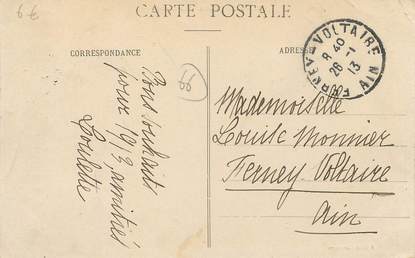 6 €
CARTE POSTALE
CORRESPONDANCE
ADRESSE
FERNEY-VOLTAIRE
8 40
26 - 1
13
AIN
55
Bons souhaits
pour 1913, amitiés
Loulette
Mademoiselle
Louise Monnier
Ferney-Voltaire
Ain